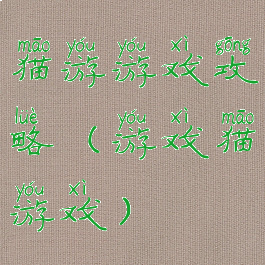 māo yóu yóu xì gōng
猫游游戏攻
lüè yóu xì māo
略（游戏猫
yóu xì
游戏）